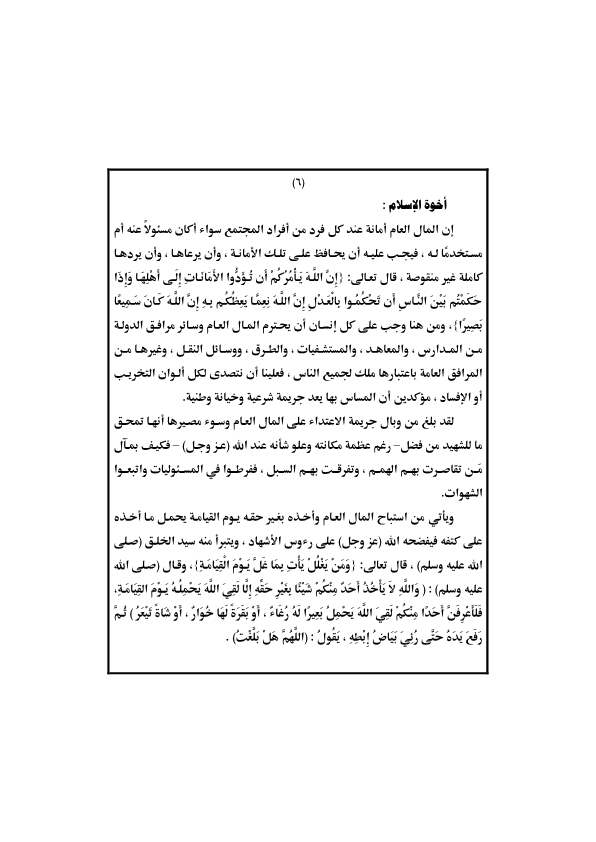 (٦)
أخوة الإسلام :
إن المال العام أمانة عند كل فرد من أفراد المجتمع سواء أكان مسئولاً عنه أم
مستخدمًا له ، فيجب عليه أن يحافظ على تلك الأمانة ، وأن يرعاها ، وأن يردها
كاملة غير منقوصة ، قال تعالى: {إِنَّ اللَّهَ يَأْمُرُكُمْ أَن تُؤدُّوا الأَمَانَاتِ إِلَى أَهْلِهَا وَإِذَا
حَكَمْتُم بَيْنَ النَّاسِ أَن تَحْكُمُوا بِالْعَدْلِ إِنَّ اللَّهَ نِعِمَّا يَعِظُكُم بِهِ إِنَّ اللَّهَ كَانَ سَمِيعًا
بَصِيرًا} ، ومن هنا وجب على كل إنسان أن يحترم المال العام وسائر مرافق الدولة
من المدارس ، والمعاهد ، والمستشفيات ، والطرق ، ووسائل النقل ، وغيرها من
المرافق العامة باعتبارها ملك لجميع الناس ، فعلينا أن نتصدى لكل ألوان التخريب
أو الإفساد ، مؤكدين أن المساس بها يعد جريمة شرعية وخيانة وطنية.
لقد بلغ من وبال جريمة الاعتداء على المال العام وسوء مصيرها أنها تمحق
ما للشهيد من فضل– رغم عظمة مكانته وعلو شأنه عند الله (عز وجل) – فكيف بمآل
مَن تقاصرت بهم الهمم ، وتفرقت بهم السبل ، ففرطوا في المسئوليات واتبعوا
الشهوات.
ويأتي من استباح المال العام وأخذه بغير حقه يوم القيامة يحمل ما أخذه
على كتفه فيفضحه الله (عز وجل) على رءوس الأشهاد ، ويتبرأ منه سيد الخلق (صلى
الله عليه وسلم) ، قال تعالى: {وَمَنْ يَغْلُلْ يَأْتِ بِمَا غَلَّ يَوْمَ الْقِيَامَةِ}، وقال (صلى الله
عليه وسلم) : ( وَاللَّهِ لاَ يَأْخُذُ أَحَدٌ مِنْكُمْ شَيْئًا بِغَيْرِ حَقِّهِ إِلَّا لَقِيَ اللَّهَ يَحْمِلُهُ يَوْمَ القِيَامَةِ،
فَلَأَعْرِفَنَّ أَحَدًا مِنْكُمْ لَقِيَ اللَّهَ يَحْمِلُ بَعِيرًا لَهُ رُغَاءٌ ، أَوْ بَقَرَةً لَهَا خُوَارٌ ، أَوْ شَاةً تَيْعَرُ ) ثُمَّ
رَفَعَ يَدَهُ حَتَّى رُئِيَ بَيَاضُ إِبْطِهِ ، يَقُولُ : (اللَّهُمَّ هَلْ بَلَّغْتُ) .